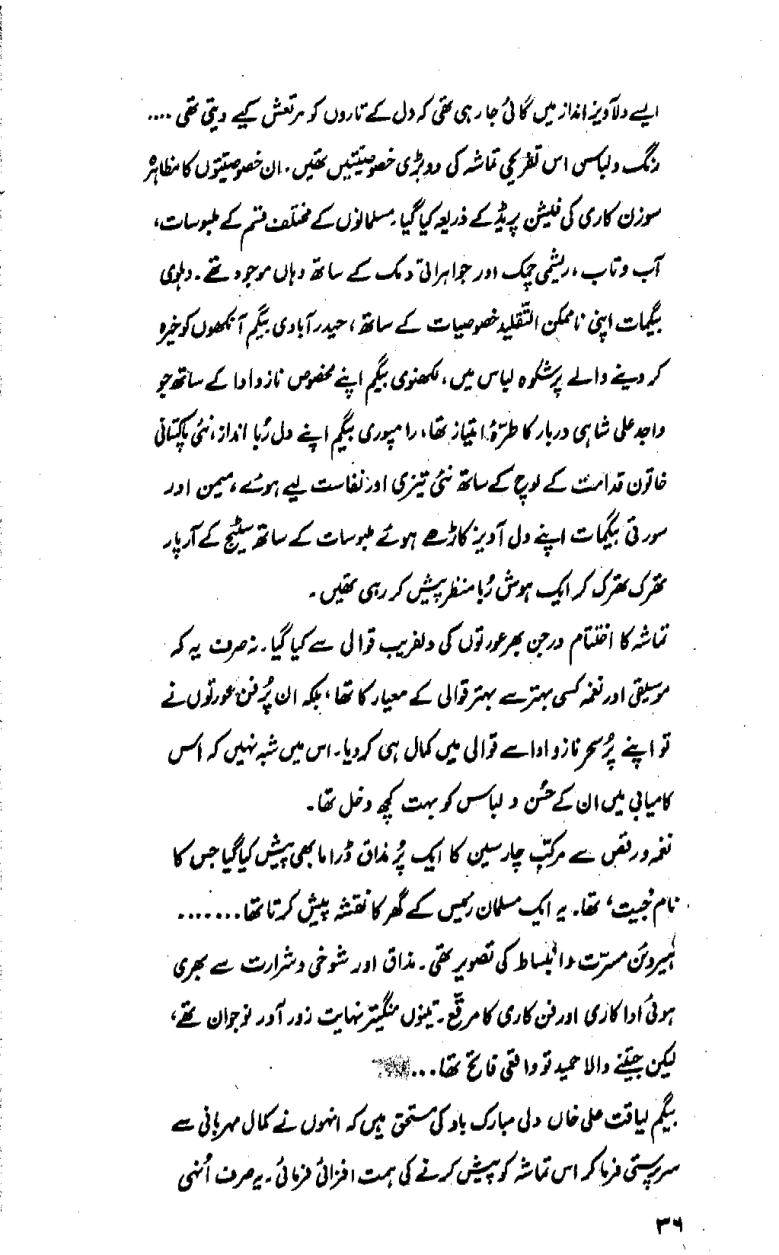 ایسے دلآویز انداز میں گائی جا رہی تھی کہ دل کے تاروں کو مرتعش کیے دیتی تھی ....
رنگ و لباس اس تفریحی تماشہ کی دو بڑی خصوصیتیں تھیں۔ ان خصوصیتوں کا مظاہرہ
سوزن کاری کی فیشن پریڈ کے ذریعہ کیا گیا۔ مسلمانوں کے مختلف قسم کے ملبوسات،
آب و تاب، ریشمی چمک اور جواہراتی دمک کے ساتھ وہاں موجود تھے۔ دہلوی
بیگمات اپنی ناممکن التّقلید خصوصیات کے ساتھ، حیدرآبادی بیگم آنکھوں کو خیرہ
کر دینے والے پُرشکوہ لباس میں، لکھنوی بیگم اپنے مخصوص ناز و ادا کے ساتھ جو
واجد علی شاہی دربار کا طرّۂ امتیاز تھا، رامپوری بیگم اپنے دل رُبا انداز، نئی پاکستانی
خاتون قدامت کے لوچ کے ساتھ نئی تیزی اور نفاست لیے ہوئے، میمن اور
سورتی بیگمات اپنے دل آویز کاڑھے ہوئے ملبوسات کے ساتھ سٹیج کے آر پار
تھرک تھرک کر ایک ہوش رُبا منظر پیش کر رہی تھیں۔
تماشہ کا اختتام درجن بھر عورتوں کی دلفریب قوالی سے کیا گیا۔ نہ صرف یہ کہ
موسیقی اور نغمہ کسی بہتر سے بہتر قوالی کے معیار کا تھا، بلکہ ان پُر فن عورتوں نے
تو اپنے پُر سحر ناز و ادا سے قوالی میں کمال ہی کر دیا۔ اس میں شبہ نہیں کہ اس
کامیابی میں ان کے حُسن و لباس کو بہت کچھ دخل تھا۔
نغمہ و رقص سے مرکّب چار سین کا ایک پُر مذاق ڈراما بھی پیش کیا گیا جس کا
نام 'جیت' تھا۔ یہ ایک مسلمان رئیس کے گھر کا نقشہ پیش کرتا تھا.......
ہیروئن مسرّت و انبساط کی تصویر تھی۔ مذاق اور شوخی و شرارت سے بھری
ہوئی اداکاری اور فن کاری کا مرقّع۔ تینوں منگیتر نہایت زور آور نوجوان تھے،
لیکن جیتنے والا حمید تو واقعی فاتح تھا...
بیگم لیاقت علی خاں دلی مبارک باد کی مستحق ہیں کہ انہوں نے کمال مہربانی سے
سرپرستی فرما کر اس تماشہ کو پیش کرنے کی ہمت افزائی فرمائی۔ یہ صرف اُنہی
۳۶